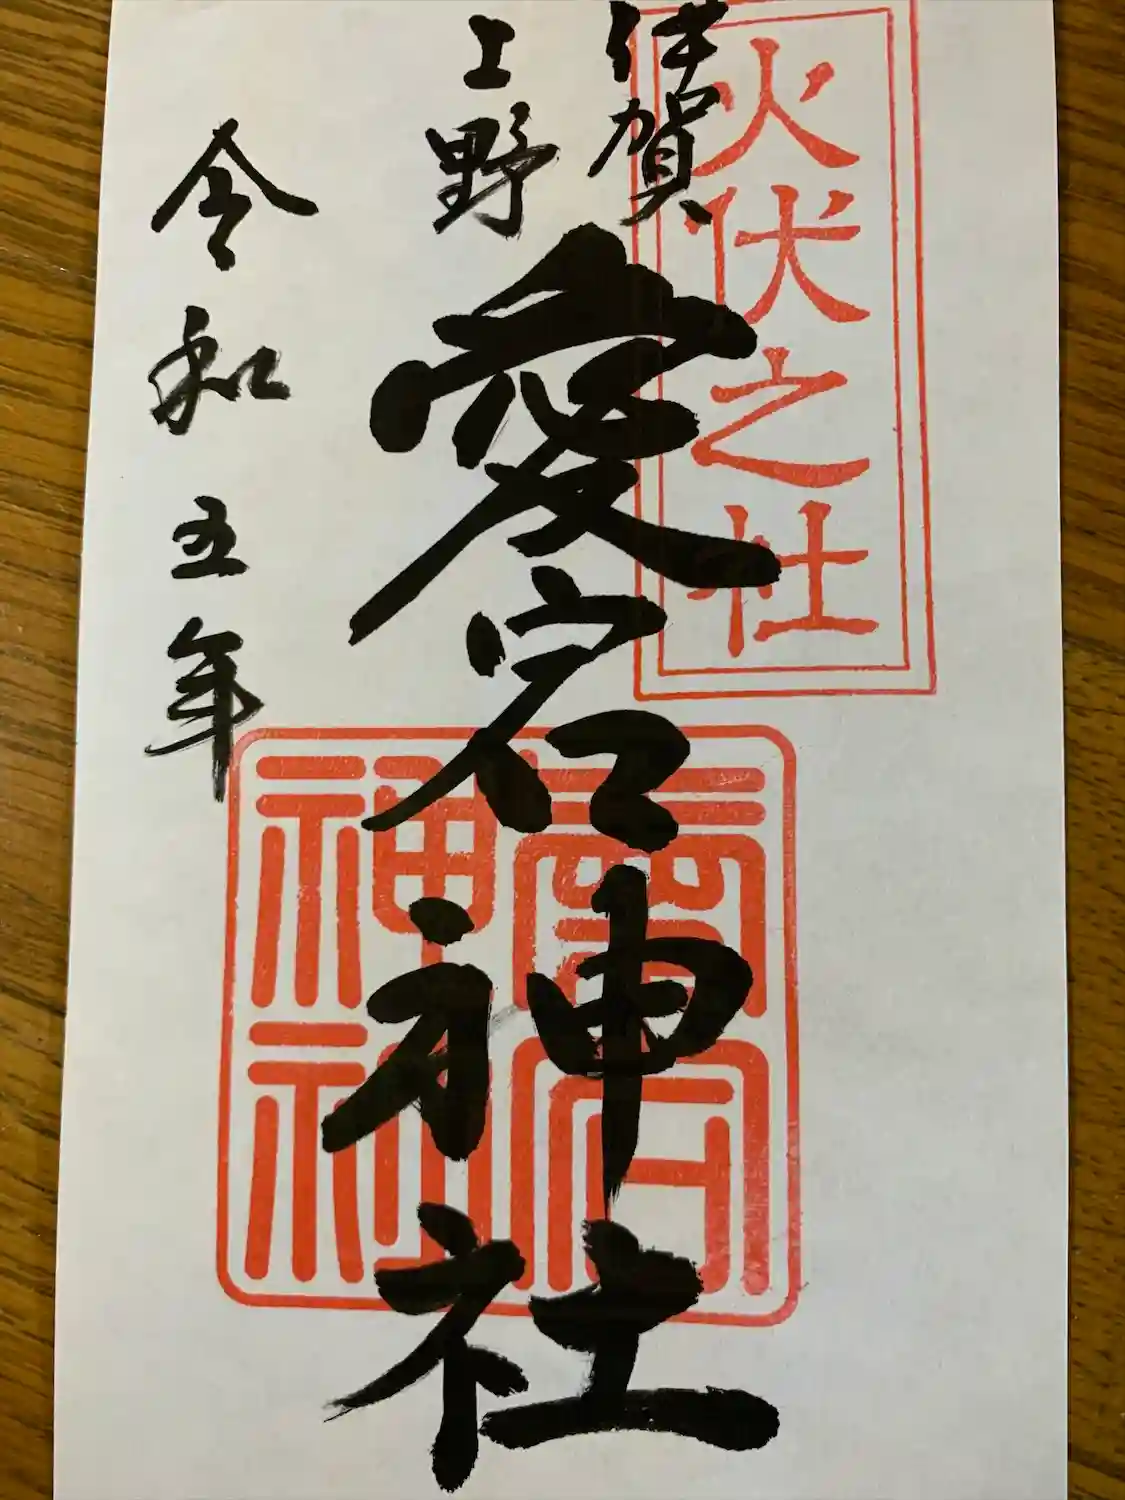 火伏之社
伊賀
上野
愛宕神社
令和五年
愛宕
神社